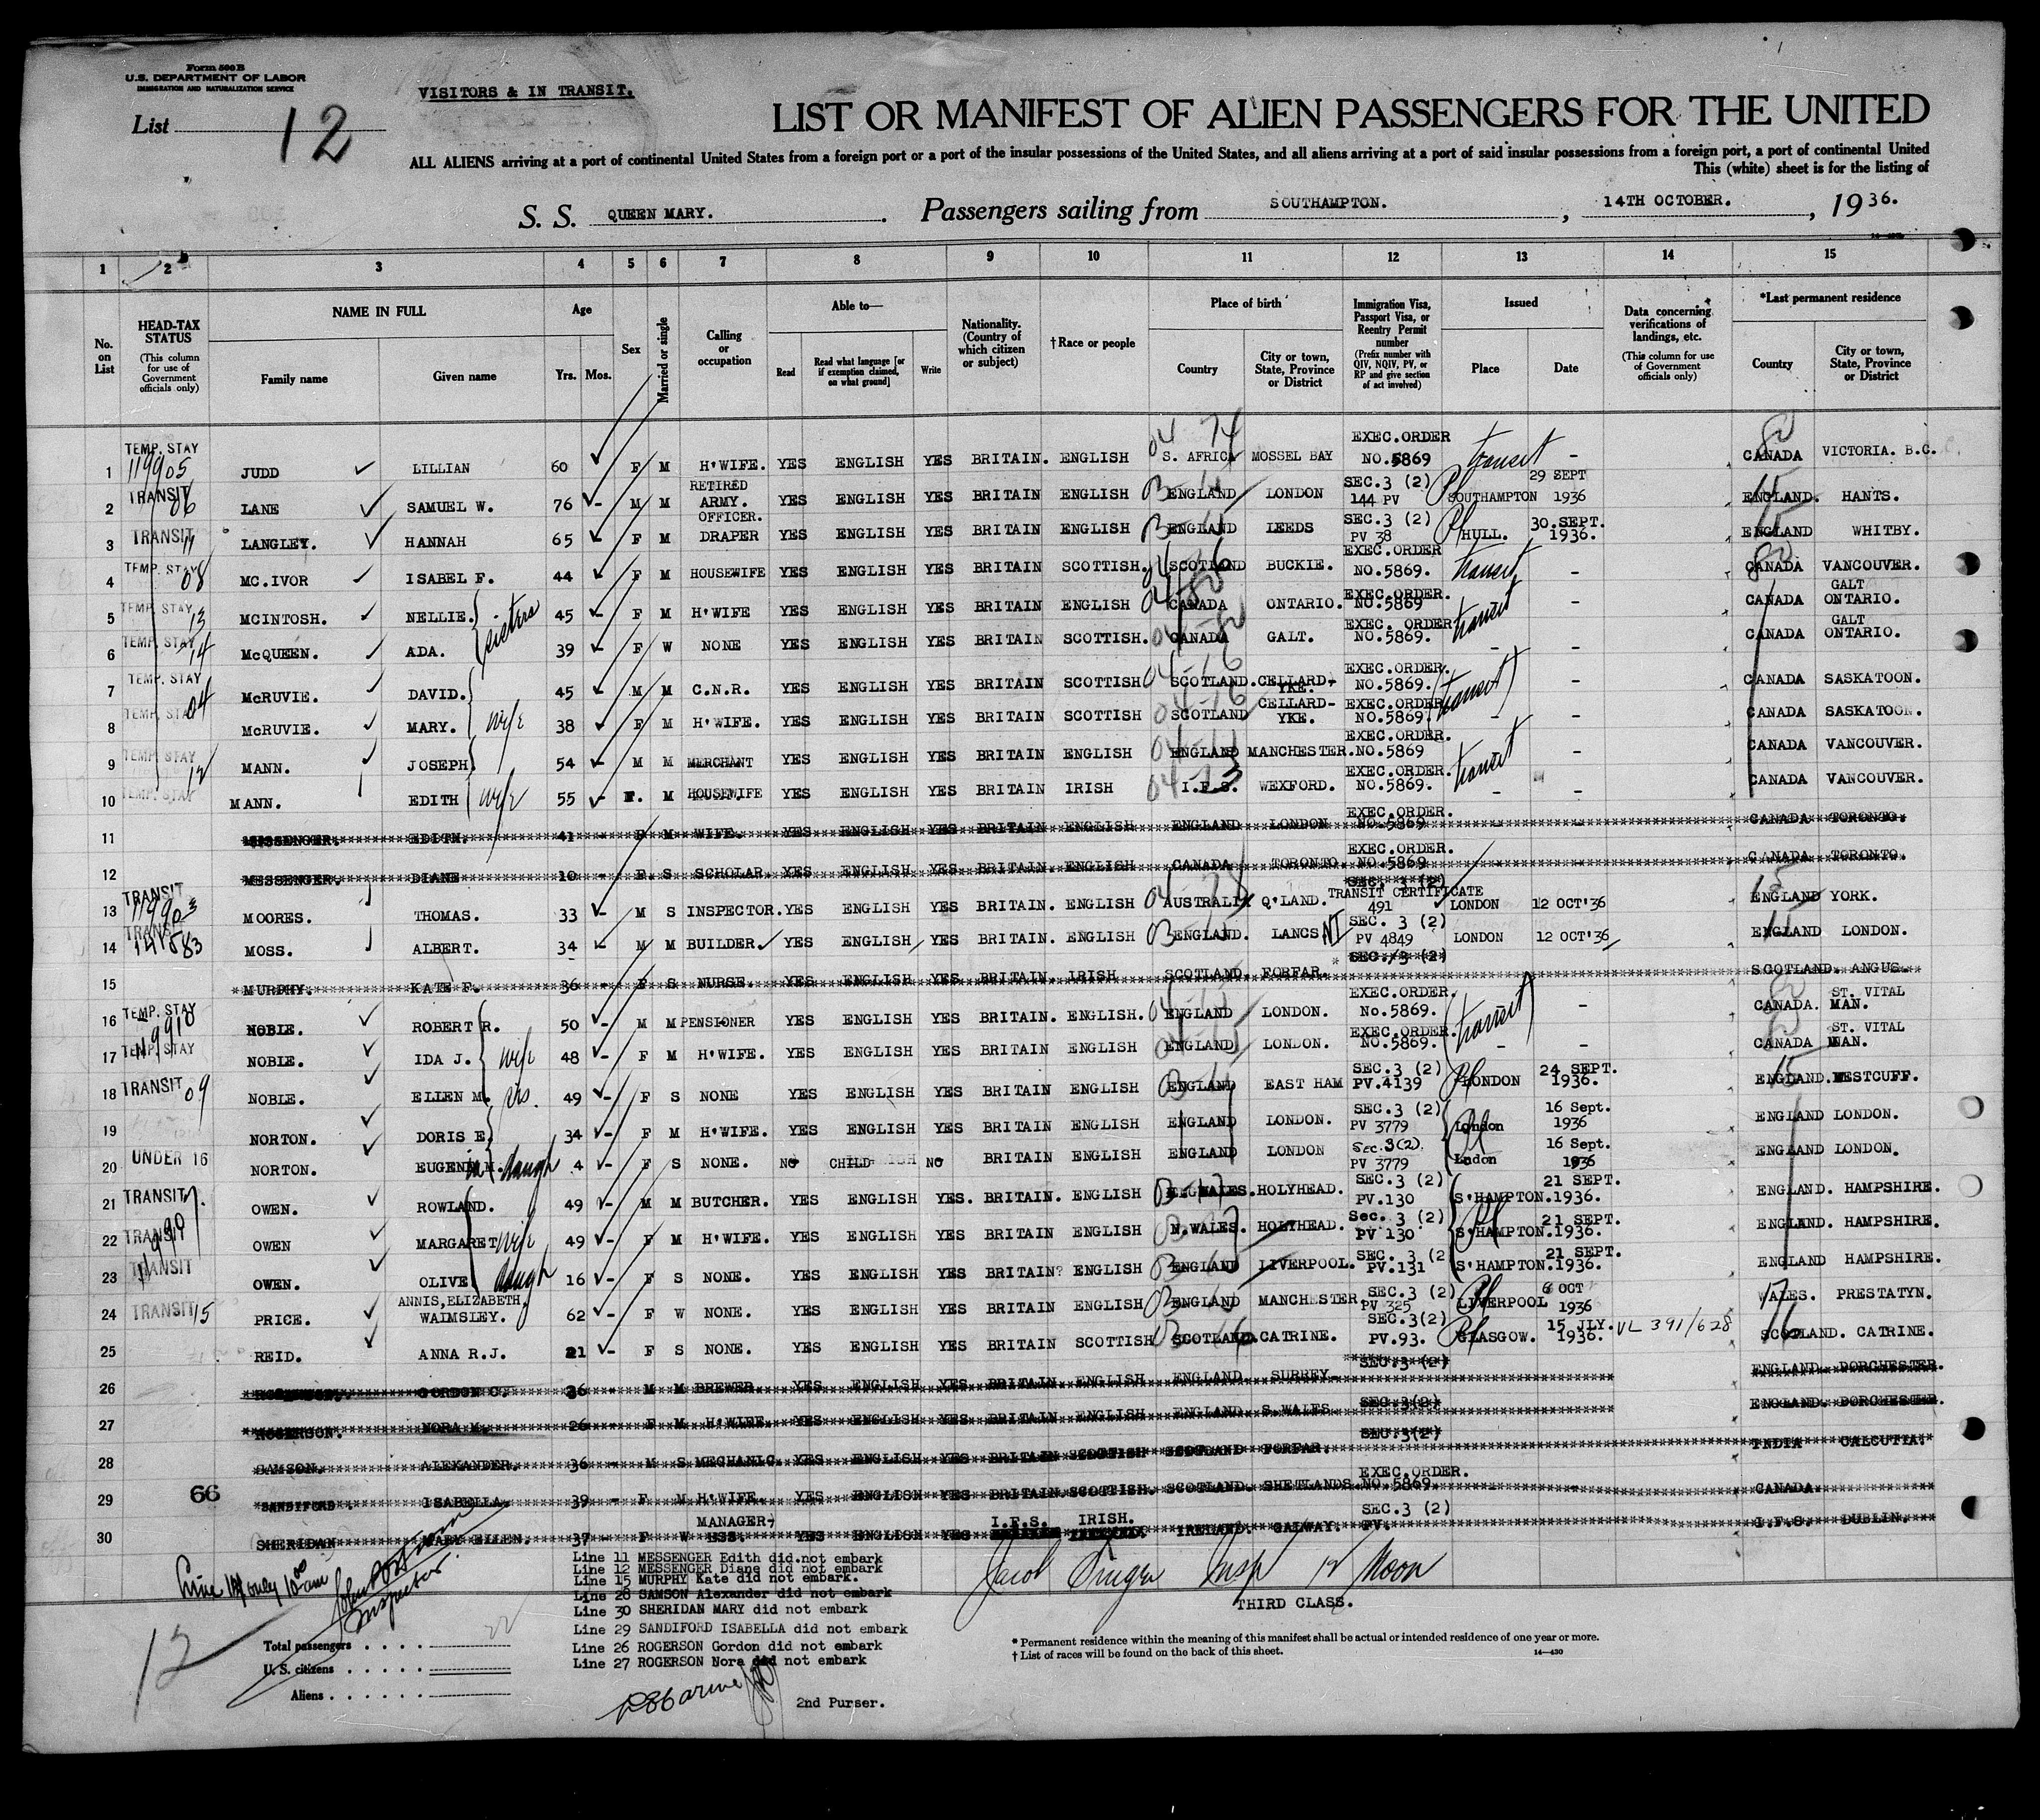 Form 500 B
U.S. DEPARTMENT OF LABOR
IMMIGRATION AND NATURALIZATION SERVICE
VISITORS & IN TRANSIT.
List 12
LIST OR MANIFEST OF ALIEN PASSENGERS FOR THE UNITED
ALL ALIENS arriving at a port of continental United States from a foreign port or a port of the insular possessions of the United States, and all aliens arriving at a port of said insular possessions from a foreign port, a port of continental United
This (white) sheet is for the listing of
S. S. QUEEN MARY. Passengers sailing from SOUTHAMPTON. , 14TH OCTOBER. , 1936.
1 2 3 4 5 6 7 8 9 10 11 12 13 14 15
No. on List
HEAD-TAX STATUS (This column for use of Government officials only)
NAME IN FULL Family name Given name
Age Yrs. Mos.
Sex
Married or single
Calling or occupation
Able to— Read Read what language [or if exemption claimed, on what ground] Write
Nationality. (Country of which citizen or subject)
†Race or people
Place of birth Country City or town, State, Province or District
Immigration Visa, Passport Visa, or Reentry Permit number (Prefix number with QIV, NQIV, PV, or RP and give section of act involved)
Issued Place Date
Data concerning verifications of landings, etc. (This column for use of Government officials only)
*Last permanent residence Country City or town, State, Province or District
1 TEMP. STAY 119905 JUDD LILLIAN 60 F M H'WIFE. YES ENGLISH YES BRITAIN. ENGLISH 04-74 S. AFRICA MOSSEL BAY EXEC.ORDER NO.5869 transit - CANADA VICTORIA. B.C.
2 TRANSIT 06 LANE SAMUEL W. 76 - M M RETIRED ARMY. OFFICER. YES ENGLISH YES BRITAIN ENGLISH ENGLAND LONDON SEC.3 (2) 144 PV SOUTHAMPTON 29 SEPT 1936 ENGLAND. HANTS.
3 TRANSIT 11 LANGLEY. HANNAH 65 F M DRAPER YES ENGLISH YES BRITAIN ENGLISH ENGLAND LEEDS SEC.3 (2) PV 38 HULL. 30.SEPT. 1936. ENGLAND WHITBY.
4 TEMP. STAY 08 MC.IVOR ISABEL F. 44 F M HOUSEWIFE YES ENGLISH YES BRITAIN SCOTTISH. SCOTLAND BUCKIE. EXEC.ORDER NO.5869. transit - CANADA VANCOUVER.
5 TEMP. STAY 13 MCINTOSH. NELLIE. sisters 45 - F M H'WIFE YES ENGLISH YES BRITAIN ENGLISH CANADA ONTARIO. EXEC.ORDER. NO.5869 transit - CANADA GALT ONTARIO.
6 TEMP. STAY 14 McQUEEN. ADA. 39 - F W NONE YES ENGLISH YES BRITAIN SCOTTISH. CANADA GALT. EXEC. ORDER NO.5869. - - CANADA GALT ONTARIO.
7 TEMP. STAY McRUVIE. DAVID. 45 - M M C.N.R. YES ENGLISH YES BRITAIN SCOTTISH 04-16 SCOTLAND. CELLARD-YKE. EXEC.ORDER. NO.5869. transit - CANADA SASKATOON.
8 TEMP. STAY 04 McRUVIE. MARY. wife 38 F M H'WIFE. YES ENGLISH YES BRITAIN SCOTTISH 04-16 SCOTLAND CELLARD-YKE. EXEC.ORDER NO.5869. - - CANADA SASKATOON.
9 TEMP. STAY 12 MANN. JOSEPH 54 - M M MERCHANT YES ENGLISH YES BRITAIN ENGLISH ENGLAND MANCHESTER. EXEC.ORDER. NO.5869 transit - CANADA VANCOUVER.
10 TEMP. STAY MANN. EDITH wife 55 - F. M HOUSEWIFE YES ENGLISH YES BRITAIN IRISH I.F.S. WEXFORD. EXEC.ORDER. NO.5869. - - CANADA VANCOUVER.
11 MESSENGER. EDITH. 41 - F M WIFE. YES ENGLISH YES BRITAIN ENGLISH ENGLAND LONDON EXEC.ORDER. NO.5869 CANADA TORONTO.
12 MESSENGER. DIANE 10 - F. S SCHOLAR. YES ENGLISH YES. BRITAIN. ENGLISH CANADA TORONTO EXEC.ORDER. NO.5869 CANADA TORONTO.
13 TRANSIT 119903 MOORES. THOMAS. 33 - M S INSPECTOR. YES ENGLISH YES BRITAIN. ENGLISH AUSTRALIA Q'LAND. SEC. 3 (2) TRANSIT CERTIFICATE 491 LONDON 12 OCT'36 ENGLAND YORK.
14 TRANSIT 141583 MOSS. ALBERT. 34 - M M BUILDER. YES ENGLISH YES BRITAIN. ENGLISH ENGLAND. LANCS SEC. 3 (2) PV 4849 LONDON 12 OCT'36 ENGLAND LONDON.
15 MURPHY. KATE F. 36 F S NURSE. YES ENGLISH YES. BRITAIN. IRISH SCOTLAND. FORFAR. SEC. 3 (2) SCOTLAND. ANGUS.
16 TEMP. STAY 119910 NOBLE. ROBERT R. 50 - M M PENSIONER YES ENGLISH YES BRITAIN. ENGLISH. ENGLAND LONDON. EXEC.ORDER. No.5869. transit - CANADA. ST. VITAL MAN.
17 TEMP. STAY NOBLE. IDA J. wife 48 - F M H'WIFE. YES ENGLISH YES BRITAIN ENGLISH ENGLAND LONDON. EXEC.ORDER. NO.5869. - - CANADA ST. VITAL MAN.
18 TRANSIT 09 NOBLE. ELLEN M. sis. 49 - F S NONE YES ENGLISH YES BRITAIN ENGLISH ENGLAND EAST HAM SEC.3 (2) PV.4139 LONDON 24 SEPT. 1936. ENGLAND. WESTCUFF.
19 NORTON. DORIS E. 34 - F M H'WIFE. YES ENGLISH YES BRITAIN ENGLISH ENGLAND LONDON. SEC.3 (2) PV 3779 London 16 Sept. 1936 ENGLAND LONDON.
20 UNDER 16 NORTON. daugh 4 - F S NONE. NO CHILD NO BRITAIN ENGLISH ENGLAND LONDON Sec.3(2). PV 3779 London 16 Sept. 1936 ENGLAND LONDON.
21 TRANSIT OWEN. ROWLAND. 49 - M M BUTCHER. YES ENGLISH YES. BRITAIN. ENGLISH N.WALES. HOLYHEAD. SEC.3 (2) PV.130 S'HAMPTON. 21 SEPT. 1936. ENGLAND. HAMPSHIRE.
22 TRANSIT OWEN MARGARET wife 49 - F M H'WIFE. YES ENGLISH YES BRITAIN ENGLISH N.WALES. HOLYHEAD. Sec. 3 (2) PV 130 S'HAMPTON. 21 SEPT. 1936. ENGLAND. HAMPSHIRE.
23 TRANSIT OWEN. OLIVE daugh 16 - F S NONE. YES ENGLISH YES BRITAIN? ENGLISH ENGLAND LIVERPOOL. SEC. 3 (2 PV.131 S'HAMPTON. 21 SEPT. 1936. ENGLAND HAMPSHIRE.
24 TRANSIT 15 PRICE. ANNIS,ELIZABETH, WAIMSLEY. 62 - F W NONE. YES ENGLISH YES BRITAIN ENGLISH ENGLAND MANCHESTER SEC.3 (2) PV 325 LIVERPOOL 6 OCT 1936 WALES. PRESTATYN.
25 REID. ANNA R.J. 21 - F S NONE. YES ENGLISH YES BRITAIN SCOTTISH SCOTLAND. CATRINE. SEC.3(2) PV.93. GLASGOW. 15 JLY. 1936. VL 391/628 SCOTLAND. CATRINE.
26 GORDON C. 36 - M M BREWER. YES ENGLISH YES BRITAIN ENGLISH ENGLAND SURREY. SEC.3 (2) ENGLAND DORCHESTER.
27 ROGERSON. NORA M. 26 F M H'WIFE YES ENGLISH YES BRITAIN ENGLISH ENGLAND S.WALES SEC.3(2) ENGLAND. DORCHESTER.
28 SAMSON. ALEXANDER. 36 - M S MECHANIC. YES ENGLISH YES BRITAIN SCOTTISH SCOTLAND FORFAR. SEC.3(2) INDIA CALCUTTA.
29 66 SANDIFORD. ISABELLA. 39 - F M H'WIFE. YES ENGLISH YES BRITAIN. SCOTTISH. SCOTLAND. SHETLANDS EXEC.ORDER. NO.5869 CANADA.
30 SHERIDAN MARY ELLEN. 37 - F W MANAGER-ESS. YES ENGLISH YES I.F.S. IRISH. IRELAND. GALWAY. SEC.3 (2) PV. I.F.S. DUBLIN.
Line 11 MESSENGER Edith did.not embark
Line 12 MESSENGER Diane did not embark
Line 15 MURPHY Kate did not embark.
Line 28 SAMSON Alexander did not embark
Line 30 SHERIDAN MARY did not embark
Line 29 SANDIFORD ISABELLA did not embark
Line 26 ROGERSON Gordon did not embark
Line 27 ROGERSON Nora did not embark
Inspector.
Jacob Insp 12 Noon
THIRD CLASS.
12
Total passengers . . . . . 22
U. S. citizens . . . . .
Aliens . . . . . .
2nd Purser.
* Permanent residence within the meaning of this manifest shall be actual or intended residence of one year or more.
† List of races will be found on the back of this sheet. 14—430